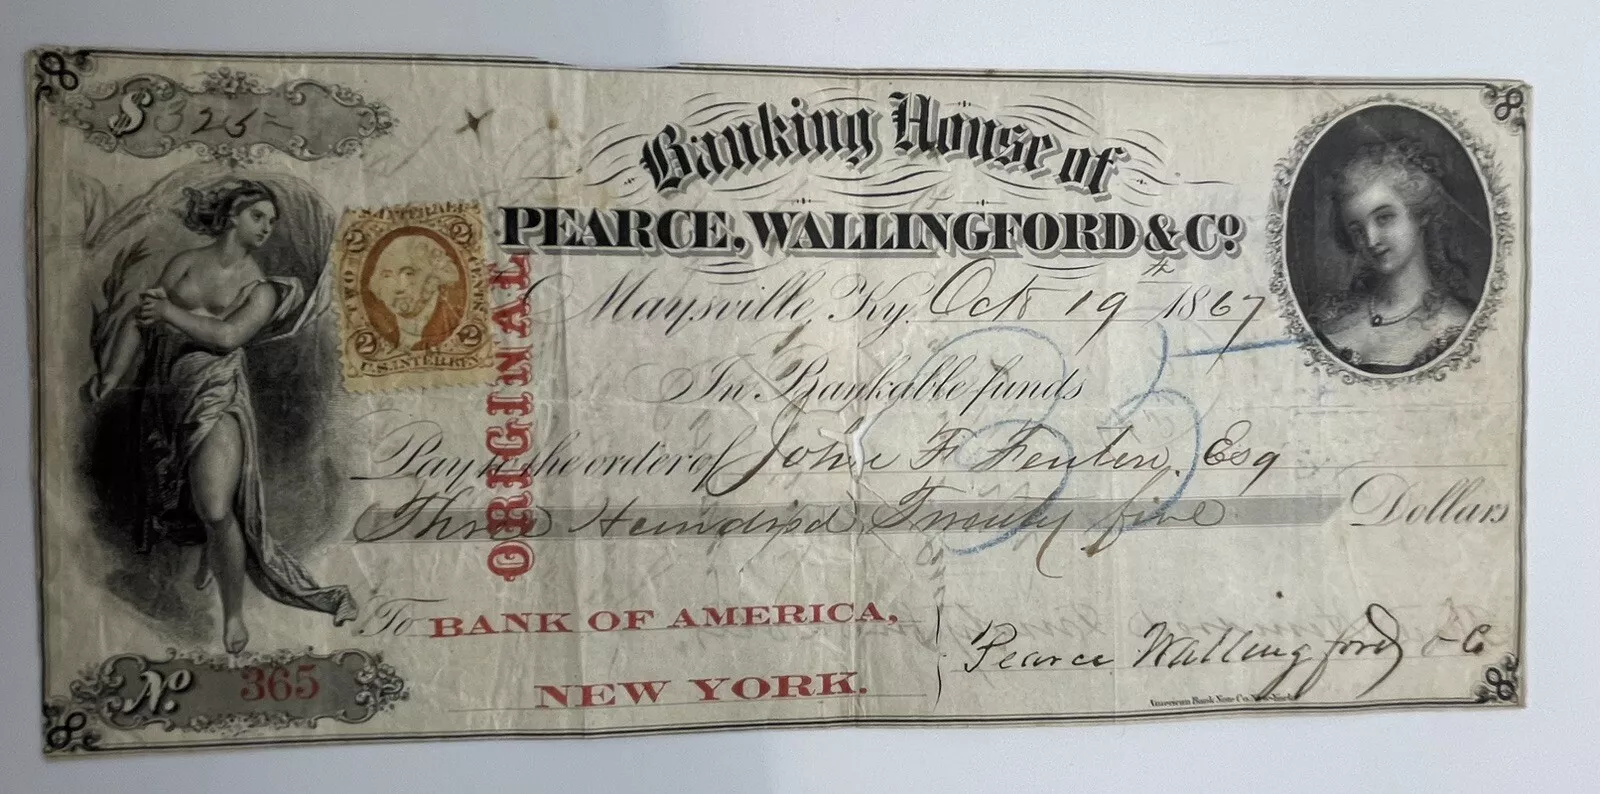 $ 325=
Banking House of
PEARCE, WALLINGFORD & Co.
U.S. INTER. REV.
TWO CENTS
2 2
U.S. INTER. REV.
ORIGINAL
Maysville, Ky. Oct 19th 1867
In Bankable funds
Pay to the order of John F Fenton, Esq
Three Hundred Twenty five Dollars
To BANK OF AMERICA,
NEW YORK.
Pearce Wallingford & Co
No. 365
American Bank Note Co. New-York.